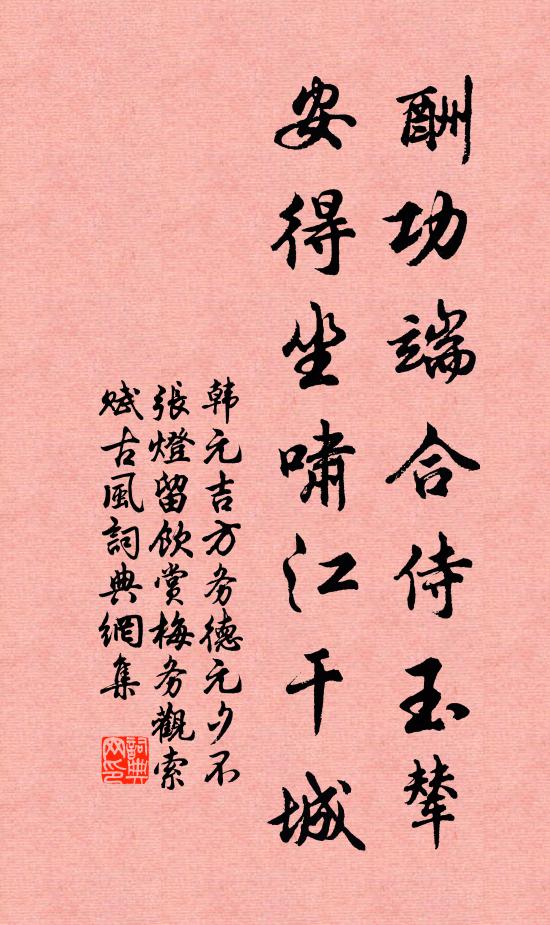 酬功端合侍玉輦
安得坐嘯江干城
韩元吉方务德元夕不
張燈留飲賞梅务觀索
赋古風詞典網集
詞典网印